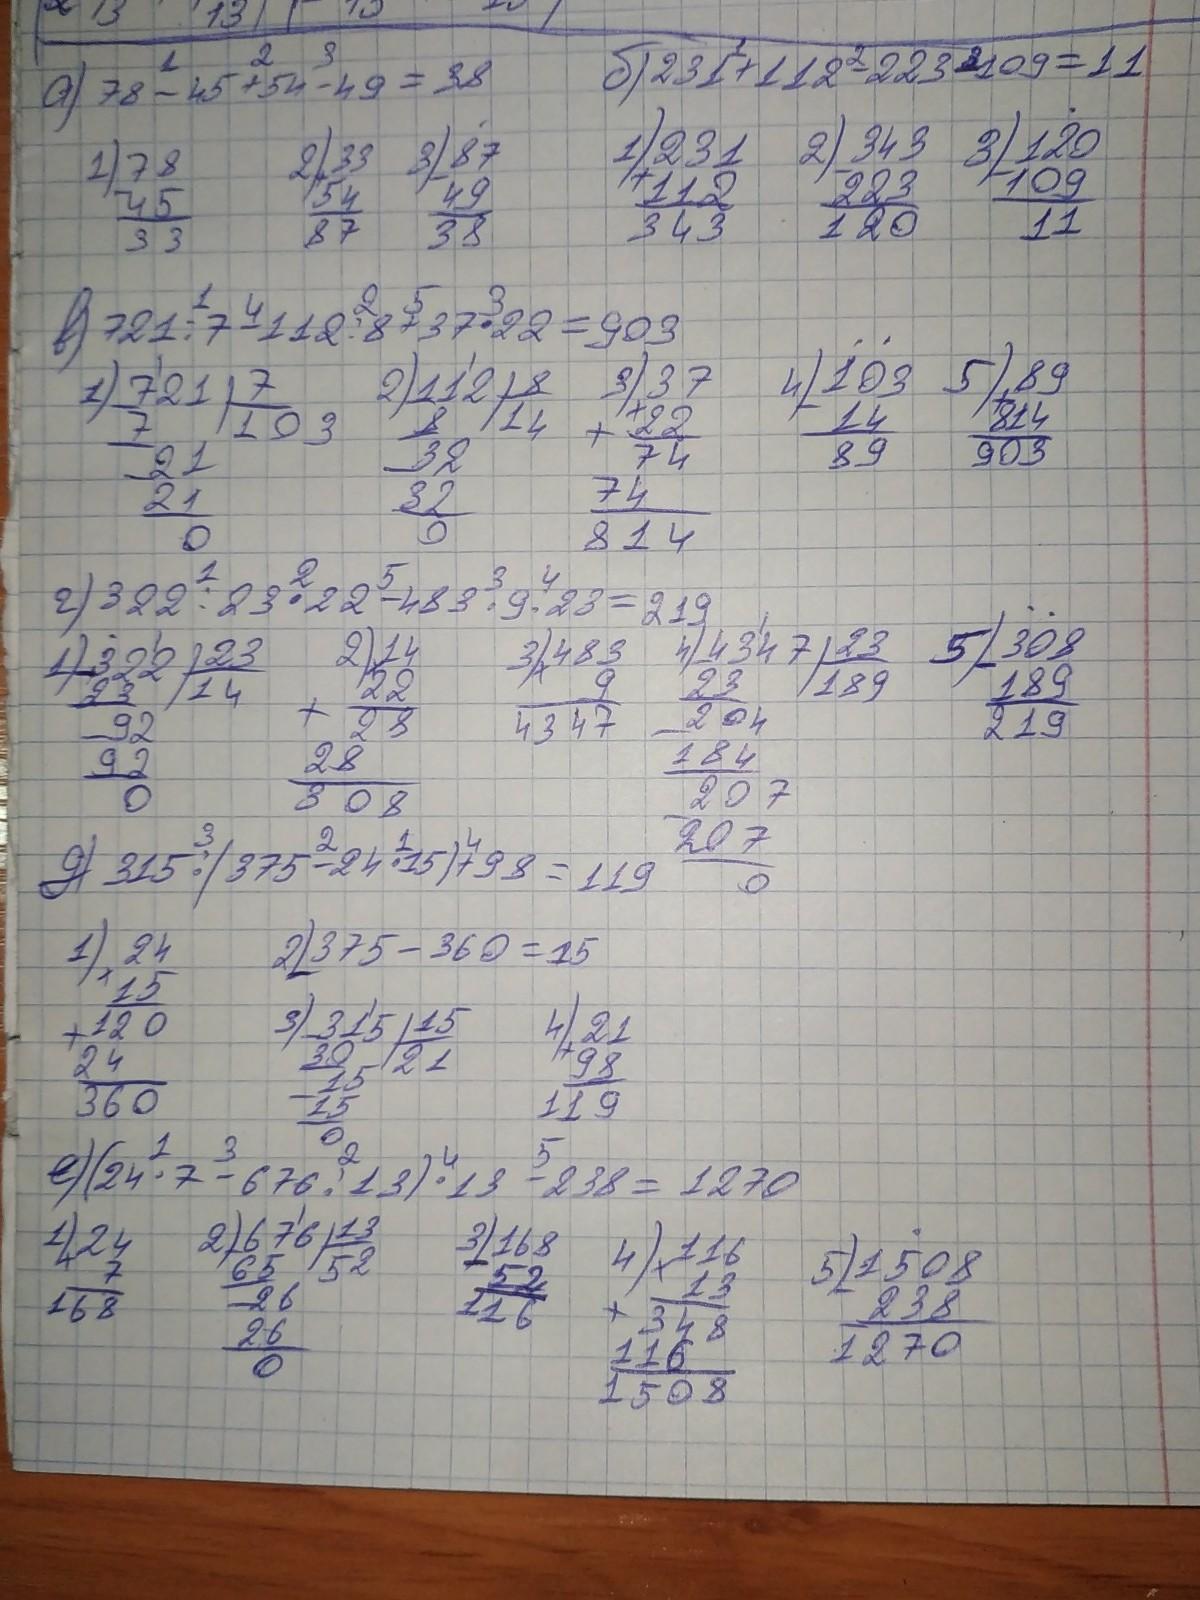 а) 78 - 45 + 54 - 49 = 38
б) 231 + 112 - 223 - 109 = 11
1) 78 - 45 33
2) 33 + 54 87
3) 87 - 49 38
1) 231 + 112 343
2) 343 - 223 120
3) 120 - 109 11
в) 721 : 7 - 112 : 8 + 37 · 22 = 903
1) 721 | 7 103
7
21
21
0
2) 112 | 8 14
8
32
32
0
3) 37 × 22
+ 74
74
814
4) 103 - 14 89
5) 89 + 814 903
г) 322 : 23 · 22 - 483 · 9 : 23 = 219
1) 322 | 23 14
23
92
92
0
2) 14 × 22
+ 28
28
308
3) 483 × 9 4347
4) 4347 | 23 189
23
204
184
207
207
0
5) 308 - 189 219
д) 315 : (375 - 24 · 15) + 98 = 119
1) 24 × 15
+ 120
24
360
2) 375 - 360 = 15
3) 315 | 15 21
30
15
15
0
4) 21 + 98 119
е) (24 · 7 - 676 : 13) · 13 - 238 = 1270
1) 24 × 7 168
2) 676 | 13 52
65
26
26
0
3) 168 - 52 116
4) 116 × 13
+ 348
116
1508
5) 1508 - 238 1270